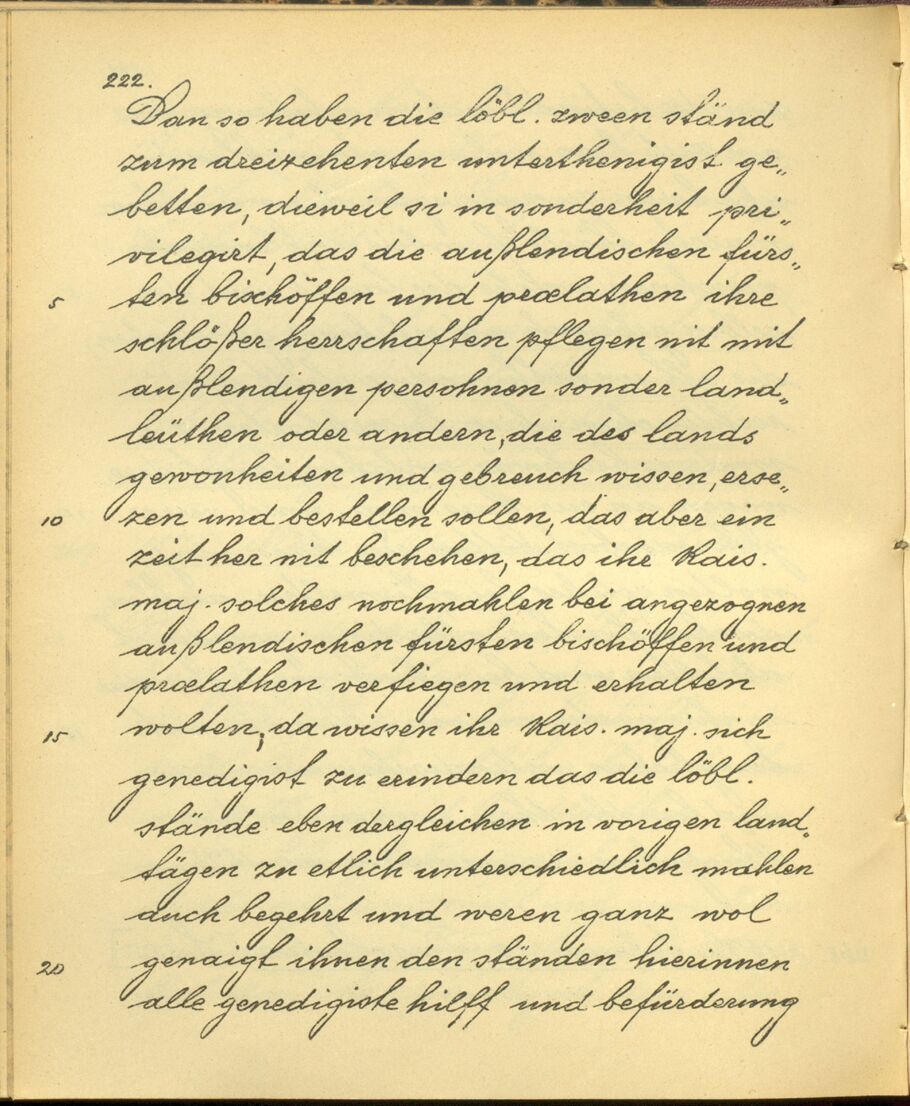 222.
Dan so haben die löbl. zween ständ
zum dreizehenten unterthenigist ge„
betten, dieweil si in sonderheit pri„
vilegirt, das die außlendischen fürs„
5 ten bischöffen und prælathen ihre
schlößer herrschaften pflegen nit mit
außlendigen persohnen sonder land„
leüthen oder andern, die des lands
gewonheiten und gebreuch wissen, erse„
10 zen und bestellen sollen, das aber ein
zeit her nit beschehen, das ihr Kais.
maj. solches nochmahlen bei angezognen
außlendischen fürsten bischöffen und
prælathen verfiegen und erhalten
15 wolten; da wissen ihr Kais. maj. sich
genedigist zu erindern das die löbl.
stände eben dergleichen in vorigen land„
tägen zu etlich unterschiedlich mahlen
auch begehrt und weren ganz wol
20 genaigt ihnen den ständen hierinnen
alle genedigiste hilff und befürderung